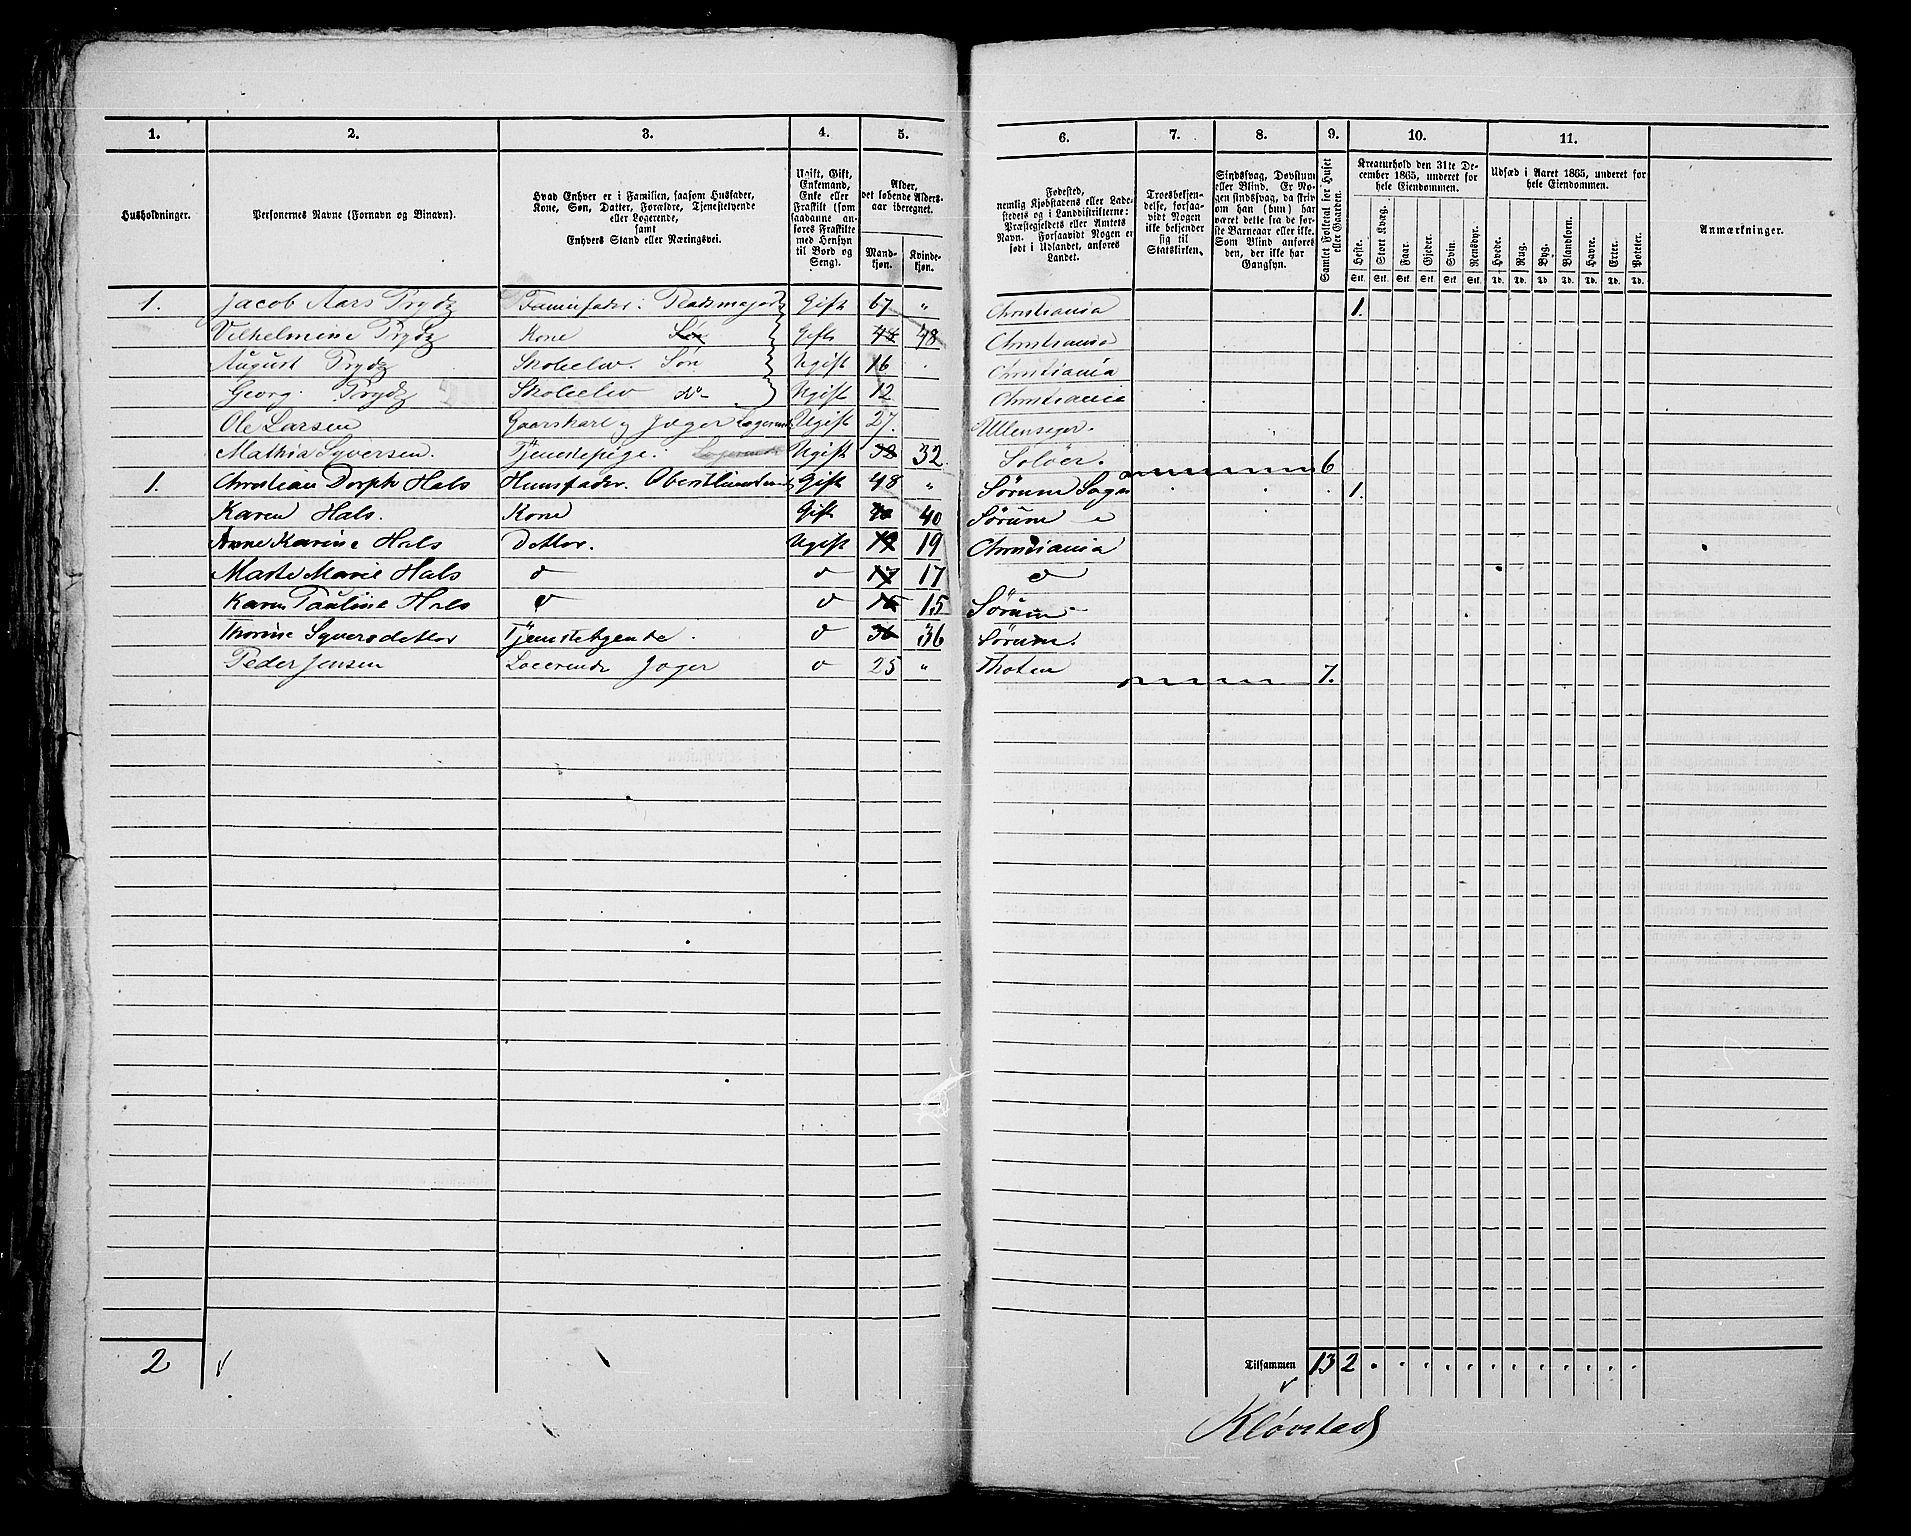 1. 2. 3. 4. 5. 6. 7. 8. 9. 10. 11.
Husholdninger.
Personernes Navne (Fornavn og Binavn).
Hvad Enhver er i Familien, saasom Husfader,
Kone, Søn, Datter, Forældre, Tjenestetyende
eller Logerende,
samt
Enhvers Stand eller Næringsvei.
Ugift, Gift,
Enkemand,
Enke eller
Fraskilt (som
saadanne an-
føres Fraskilte
med Hensyn
til Bord og
Seng).
Alder,
det løbende Alders-
aar iberegnet.
Mand-
kjøn.
Kvinde-
kjøn.
Fødested,
nemlig Kjøbstadens eller Lade-
stedets og i Landdistrikterne:
Præstegjeldets eller Amtets
Navn. Forsaavidt Nogen er
født i Udlandet, anføres
Landet.
Troesbekjen-
delse, forsaa-
vidt Nogen
ikke bekjender
sig til
Statskirken.
Sindssvag, Døvstum
eller Blind. Er No-
gen sindssvag, da skriv
om han (hun) har
været dette fra de før-
ste Barneaar eller ikke.
Som Blind anføres
den, der ikke har
Gangsyn.
Samlet Folketal for Huset
eller Gaarden.
Kreaturhold den 31te De-
cember 1865, underet for
hele Eiendommen.
Heste. Stort Kvæg. Faar. Gjeder. Svin. Rensdyr.
Stk. Stk. Stk. Stk. Stk. Stk.
Udsæd i Aaret 1865, underet for
hele Eiendommen.
Hvede. Rug. Byg. Blandkorn. Havre. Erter. Poteter.
Td. Td. Td. Td. Td. Td. Td.
Anmærkninger.
1. Jacob Aars Prydz Gift 67 " Christiania 1.
Vilhelmine Prydz Kone Søn Gift 48 48 Christiania
August Prydz Skoleelev. Søn Ugift 16 Christiania
Georg Prydz Skoleelev do Ugift 12 Christiania
Ole Larsen Gaarskarl og Jæger Logerende Ugift 27. Ullensager.
Mathia Syversen. Tjenestepige. Logerende Ugift 32 32 Soløer. 6
1. Christian Dorph Hals Huusfader. Gift 48 " Sørum Sogn 1.
Karen Hals. Kone Gift 40 40 Sørum
Anne Karine Hals Detter. Ugift 19 19 Christiania
Marte Marie Hals d d 17 17 d
Karen Pauline Hals d d 15 15 Sørum
Thorine Syversdetter Tjenestetyende d 36 36 Sørum.
Peder Jensen Logerende Jæger d 25 " Thoten 7.
2
Tilsammen 13 2
Kløvstad